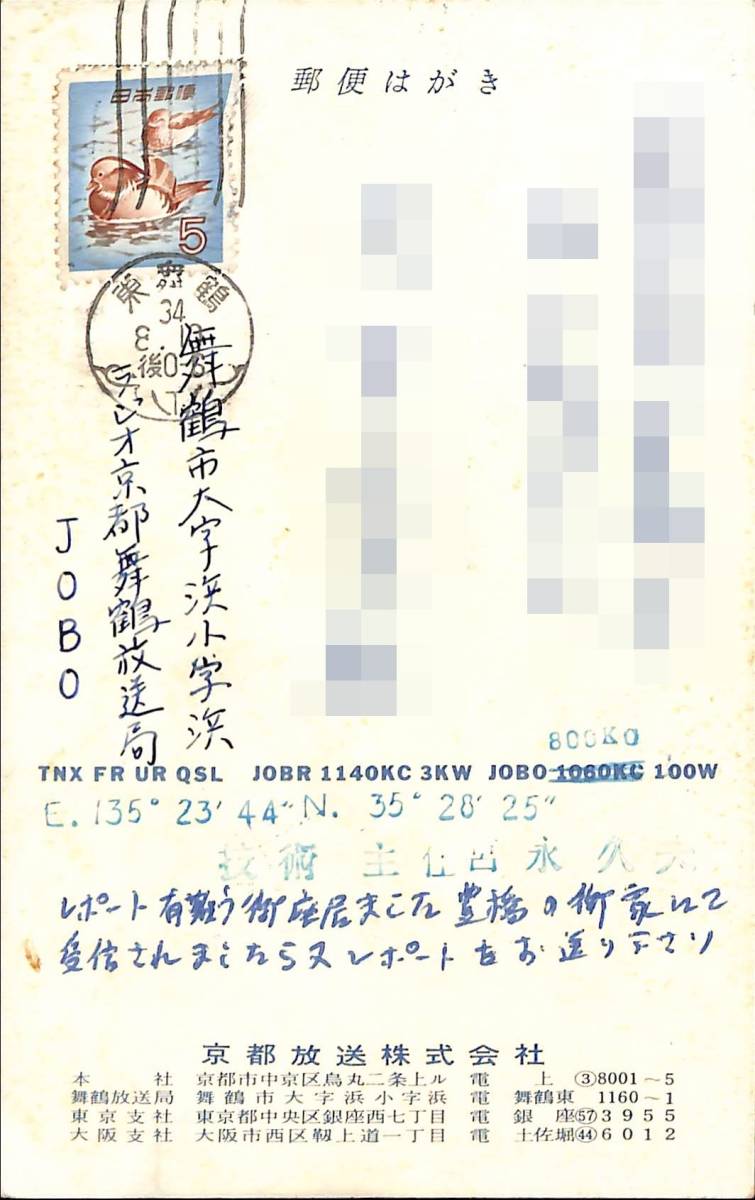 郵便はがき
日本郵便
5
東舞鶴
34
8.
後0-6
舞鶴市大字浜小字浜
ラジオ京都舞鶴放送局
JOBO
800KC
TNX FR UR QSL JOBR 1140KC 3KW JOBO 1060KC 100W
E. 135° 23' 44" N. 35° 28' 25"
技術主任 永久
レポート有難う御座居ました 豊橋の御家にて
受信されましたら又レポートをお送り下さい
京都放送株式会社
本社 京都市中京区烏丸二条上ル 電 上③8001~5
舞鶴放送局 舞鶴市大字浜小字浜 電 舞鶴東 1160~1
東京支社 東京都中央区銀座西七丁目 電 銀座㊼3955
大阪支社 大阪市西区靱上道一丁目 電 土佐堀㊹6012